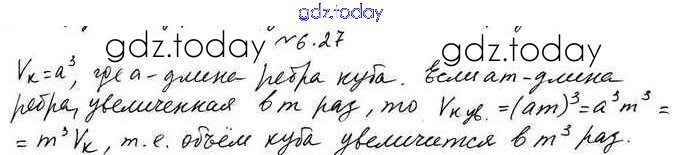 gdz.today
№6.27
gdz.today gdz.today
Vк=a³, где a-длина ребра куба. Если am-длина
ребра, увеличенная в m раз, то Vк ув.=(am)³=a³m³=
=m³Vк, т.е. объём куба увеличится в m³ раз.